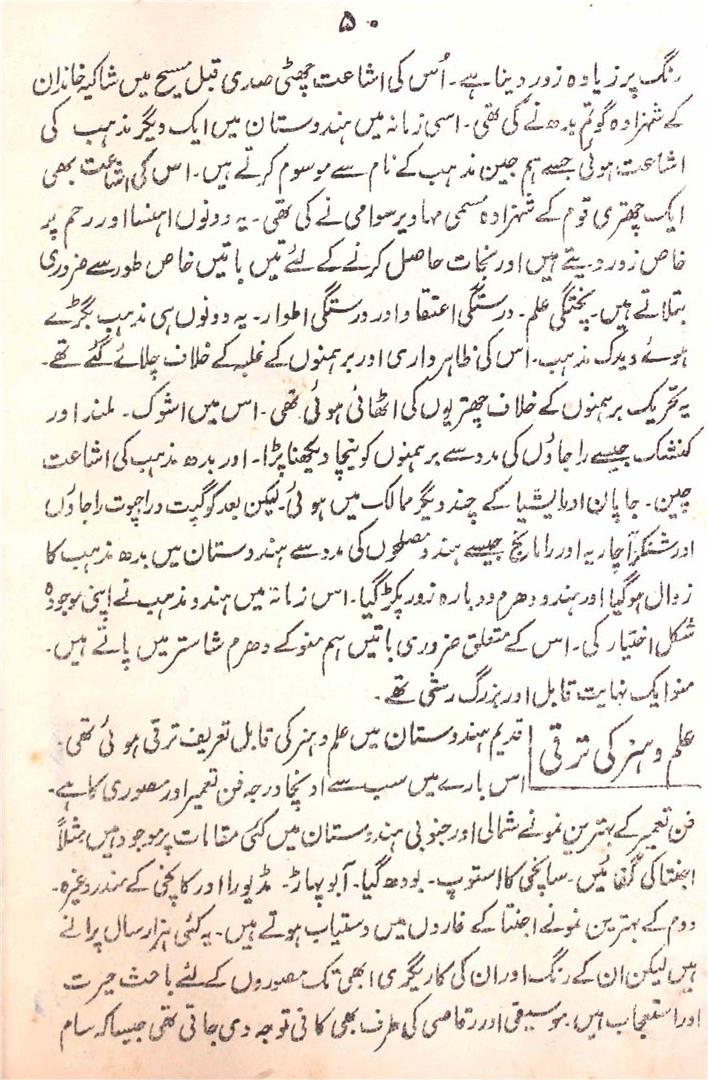 ۵۰
رنگ پر زیادہ زور دینا ہے۔ اُس کی اشاعت چھٹی صدی قبل مسیح میں شاکیہ خاندان
کے شہزادہ گوتم بدھ نے کی تھی۔ اسی زمانہ میں ہندوستان میں ایک دیگر مذہب کی
اشاعت ہوئی جسے ہم جین مذہب کے نام سے موسوم کرتے ہیں۔ اس کی اشاعت بھی
ایک چھتری قوم کے شہزادہ مسمی مہاویر سوامی نے کی تھی۔ یہ دونوں اہنسا اور رحم پر
خاص زور دیتے ہیں اور نجات حاصل کرنے کے لئے تین باتیں خاص طور سے ضروری
بتلاتے ہیں۔ پختگی علم۔ درستگی اعتقاد اور درستگی اطوار۔ یہ دونوں ہی مذہب بگڑے
ہوئے ویدک مذہب۔ اس کی ظاہر داری اور برہمنوں کے غلبہ کے خلاف چلائے گئے تھے۔
یہ تحریک برہمنوں کے خلاف چھتریوں کی اٹھائی ہوئی تھی۔ اس میں اشوک۔ ملند اور
کنشک جیسے راجاؤں کی مدد سے برہمنوں کو نیچا دیکھنا پڑا۔ اور بدھ مذہب کی اشاعت
چین۔ جاپان اور ایشیا کے چند دیگر ممالک میں ہوئی۔ لیکن بعد کو گپت و راجپوت راجاؤں
اور شنکر آچاریہ اور رامانج جیسے ہندو مصلحوں کی مدد سے ہندوستان میں بدھ مذہب کا
زوال ہو گیا اور ہندو دھرم دوبارہ زور پکڑ گیا۔ اس زمانہ میں ہندو مذہب نے اپنی موجودہ
شکل اختیار کی۔ اس کے متعلق ضروری باتیں ہم منو کے دھرم شاستر میں پاتے ہیں۔
منو ایک نہایت قابل اور بزرگ رشی تھے۔
علم و ہنر کی ترقی
قدیم ہندوستان میں علم و ہنر کی قابل تعریف ترقی ہوئی تھی۔
اس بارے میں سب سے اونچا درجہ فن تعمیر اور مصوری کا ہے۔
فن تعمیر کے بہترین نمونے شمالی اور جنوبی ہندوستان میں کئی مقامات پر موجود ہیں مثلاً
اجنتا کی گپھائیں۔ سانچی کا استوپ۔ بودھ گیا۔ آبو پہاڑ۔ مڈپورا اور کانچی کے مندر وغیرہ۔
دوم کے بہترین نمونے اجنتا کے غاروں میں دستیاب ہوتے ہیں۔ یہ کئی ہزار سال پرانے
ہیں لیکن ان کے رنگ اور ان کی کاریگری ابھی تک مصوروں کے لئے باعث حیرت
اور استعجاب ہیں۔ موسیقی اور رقاصی کی طرف بھی کافی توجہ دی جاتی تھی جیسا کہ سام